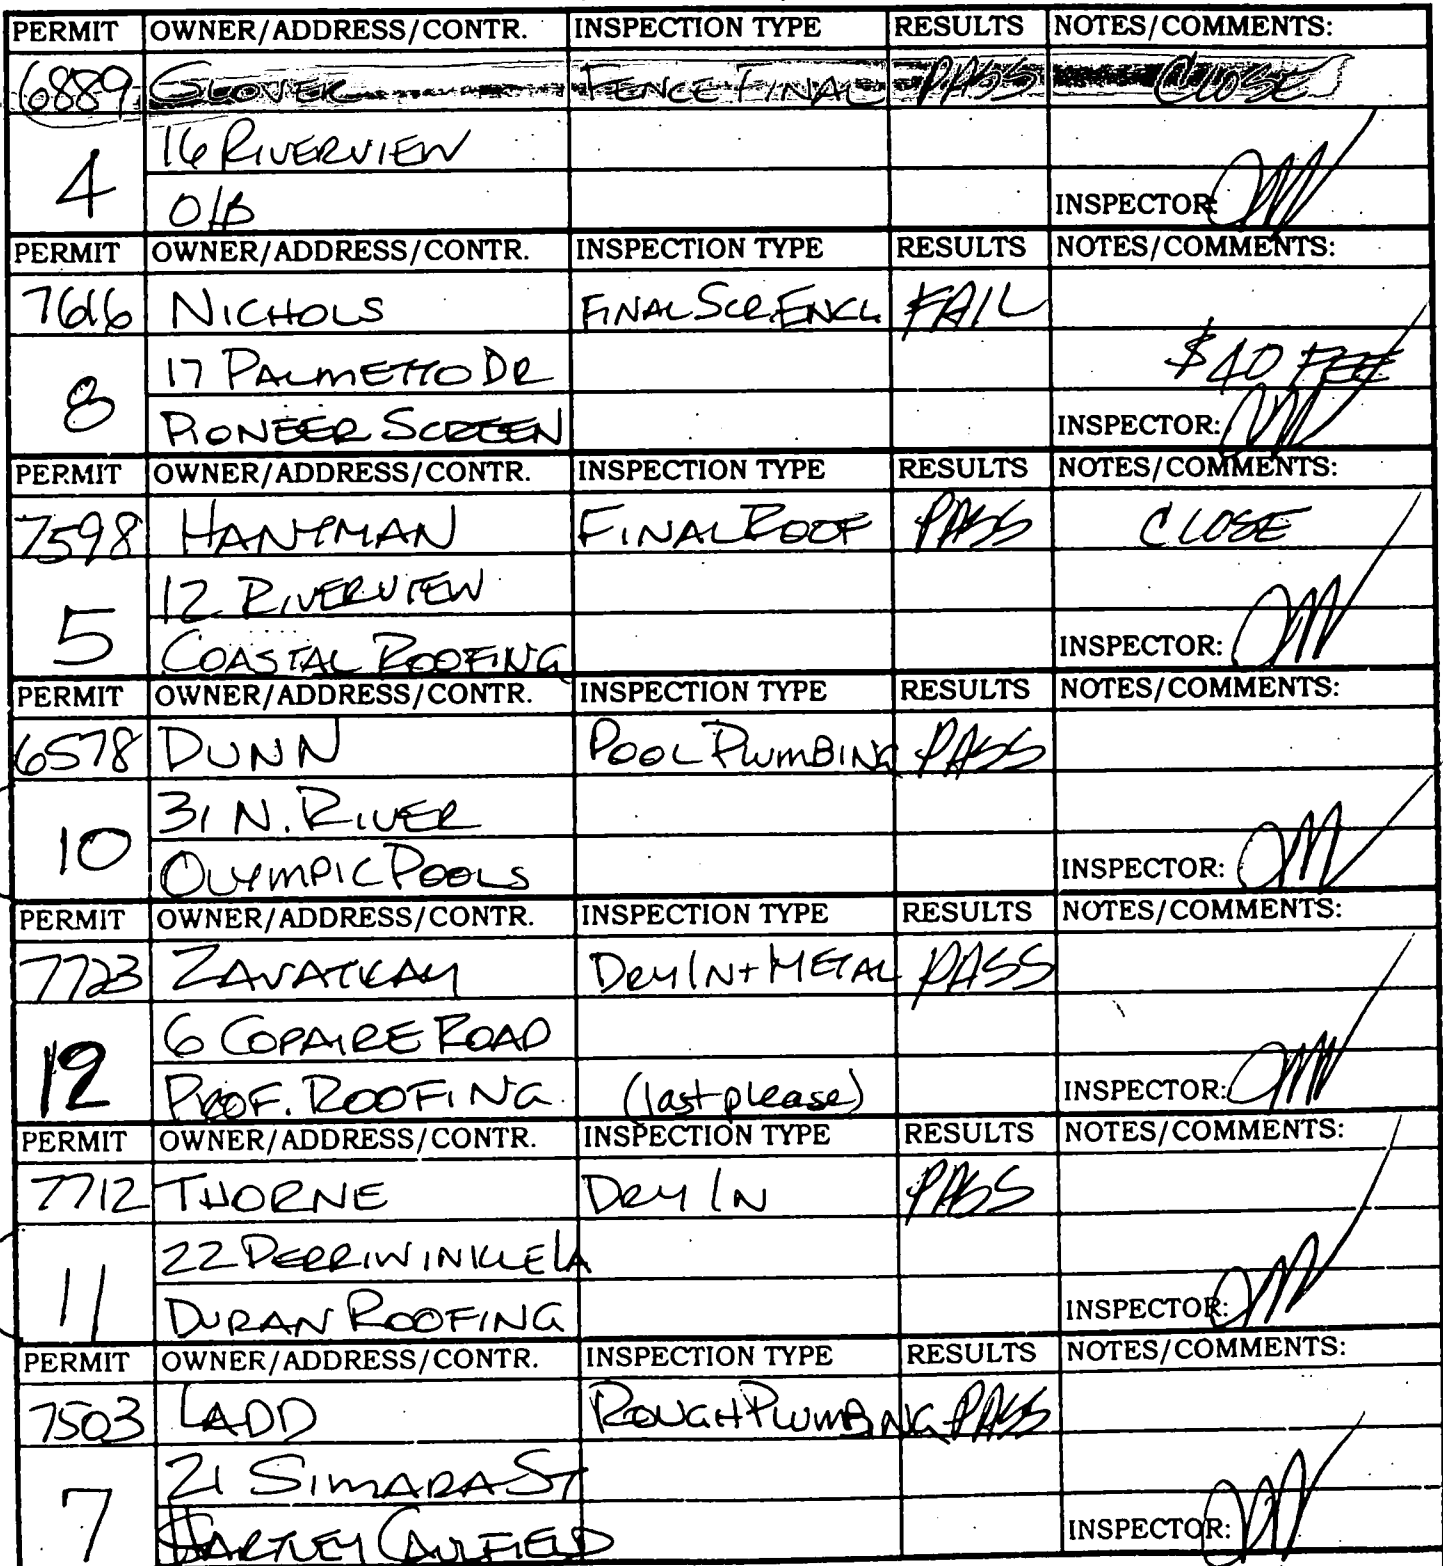 PERMIT OWNER/ADDRESS/CONTR. INSPECTION TYPE RESULTS NOTES/COMMENTS:
6889 GLOVER FENCE FINAL PASS CLOSE
4 16 RIVERVIEW
O/B INSPECTOR:
PERMIT OWNER/ADDRESS/CONTR. INSPECTION TYPE RESULTS NOTES/COMMENTS:
7616 NICHOLS FINAL SCR. ENCL. FAIL
8 17 PALMETTO DR $40 FEE
PIONEER SCREEN INSPECTOR:
PERMIT OWNER/ADDRESS/CONTR. INSPECTION TYPE RESULTS NOTES/COMMENTS:
7598 HANTMAN FINAL ROOF PASS CLOSE
5 12 RIVERVIEW
COASTAL ROOFING INSPECTOR:
PERMIT OWNER/ADDRESS/CONTR. INSPECTION TYPE RESULTS NOTES/COMMENTS:
6578 DUNN POOL PLUMBING PASS
10 31 N. RIVER
OLYMPIC POOLS INSPECTOR:
PERMIT OWNER/ADDRESS/CONTR. INSPECTION TYPE RESULTS NOTES/COMMENTS:
7723 ZAVATKAY DRY IN + METAL PASS
12 6 COPAIRE ROAD
PROF. ROOFING (last please) INSPECTOR:
PERMIT OWNER/ADDRESS/CONTR. INSPECTION TYPE RESULTS NOTES/COMMENTS:
7712 THORNE DRY IN PASS
11 22 PERRIWINKLE LA
DURAN ROOFING INSPECTOR:
PERMIT OWNER/ADDRESS/CONTR. INSPECTION TYPE RESULTS NOTES/COMMENTS:
7503 LADD ROUGH PLUMBING PASS
7 21 SIMARA ST
HARTLEY CAULFIELD INSPECTOR: